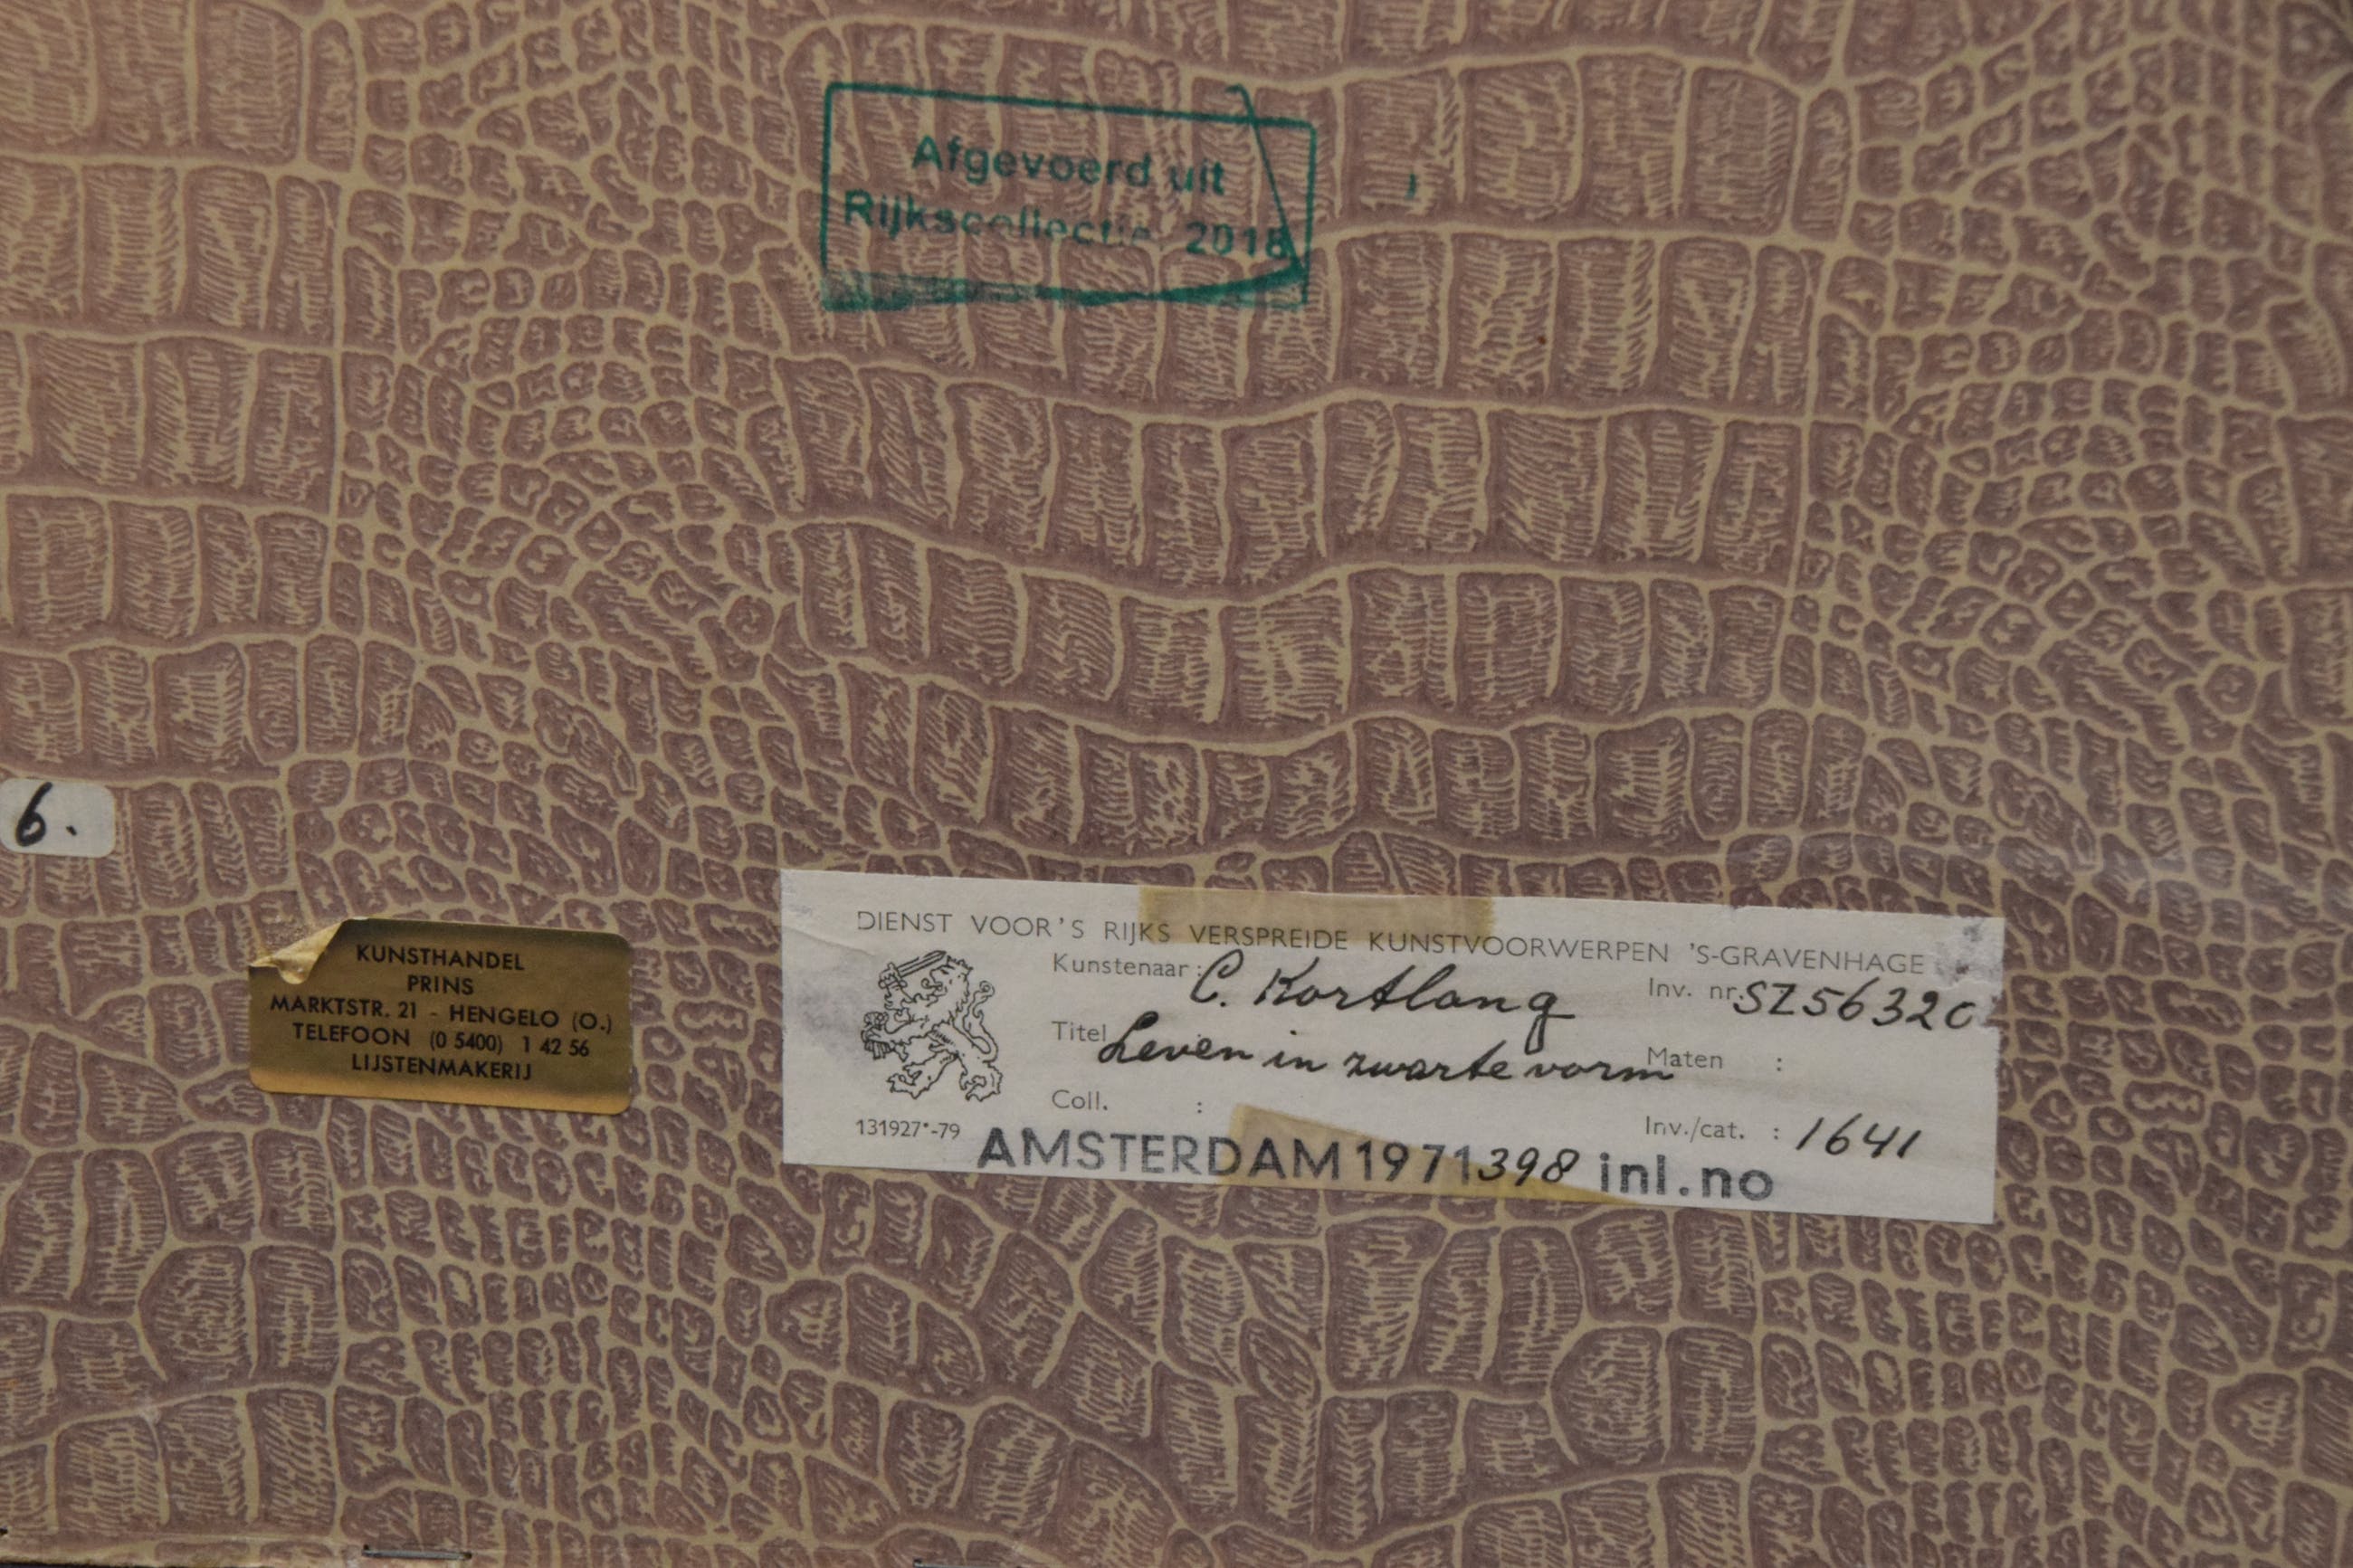 Afgevoerd uit
Rijkscollectie 2018
6.
KUNSTHANDEL
PRINS
MARKTSTR. 21 - HENGELO (O.)
TELEFOON (0 5400) 1 42 56
LIJSTENMAKERIJ
DIENST VOOR'S RIJKS VERSPREIDE KUNSTVOORWERPEN 'S-GRAVENHAGE
Kunstenaar : C. Kortlang Inv. nr. : SZ56320
Titel : Leven in zwarte vorm Maten :
Coll. :
131927*-79 Inv./cat. : 1641
AMSTERDAM 1971 398 inl.no